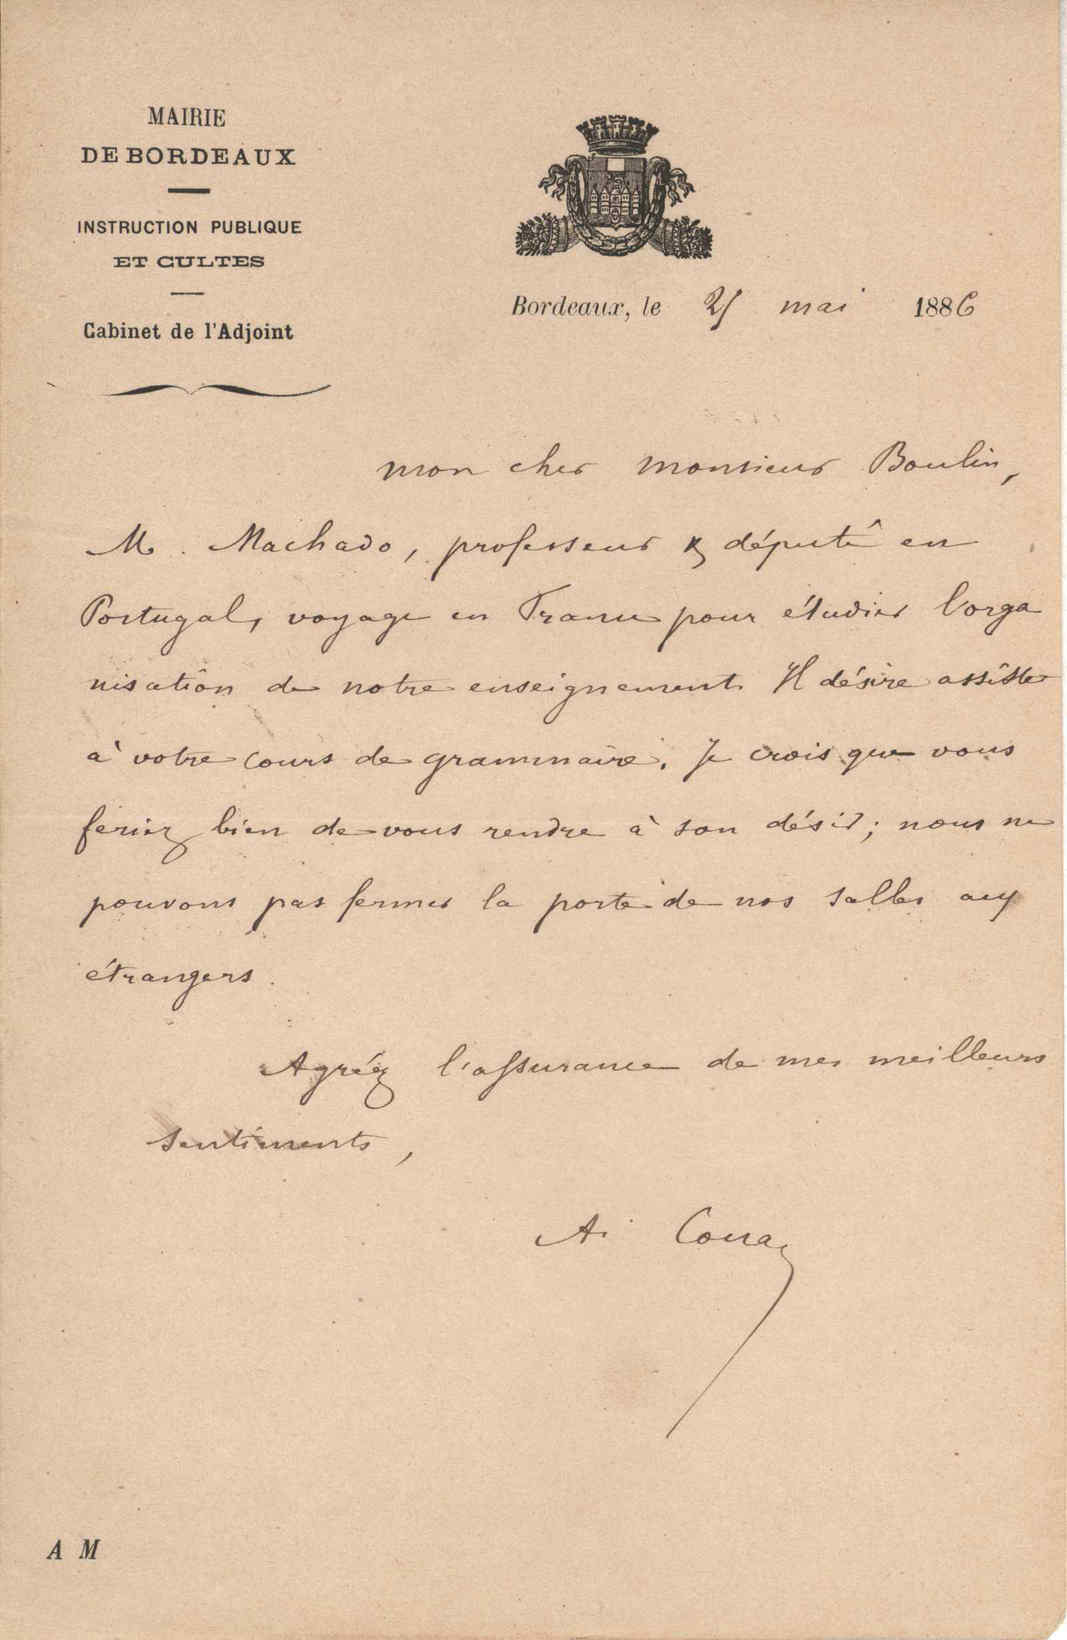 MAIRIE
DE BORDEAUX
INSTRUCTION PUBLIQUE
ET CULTES
Cabinet de l'Adjoint
Bordeaux, le 25 mai 1886
Mon cher Monsieur Boulin,
M. Machado, professeur & député en
Portugal, voyage en France pour étudier l'orga
nisation de notre enseignement. Il désire assister
à votre cours de grammaire. Je crois que vous
feriez bien de vous rendre à son désir; nous ne
pouvons pas fermer la porte de nos salles aux
étrangers.
Agréez l'assurance de mes meilleurs
sentiments,
A.
A M